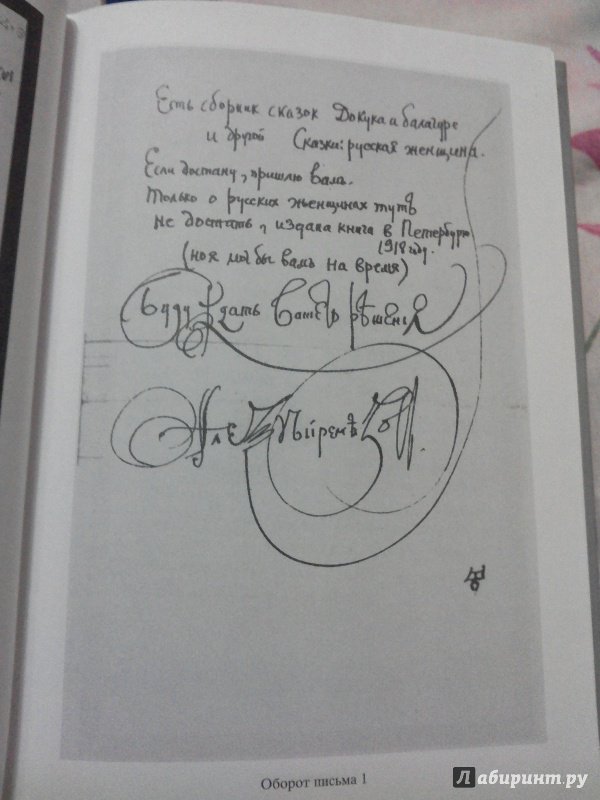 Есть сборник сказок Докука и балагурье
и другой Сказки: русская женщина.
Если достану, пришлю Вамъ.
Только о русских женщинах тутъ
не достать, издана книга в Петербурге
1918 году.
(но я мог бы вамъ на время)
Буду ждать Вашего рѣшенія
Алексѣй Ремизовъ
Оборот письма 1
Лабиринт.ру